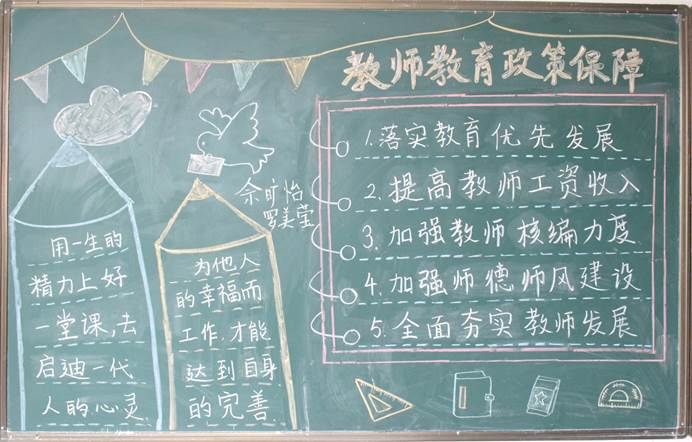 教师教育政策保障
1.落实教育优先发展
2.提高教师工资收入
3.加强教师核编力度
4.加强师德师风建设
5.全面夯实教师发展
余旷怡
罗美莹
用一生的
精力上好
一堂课,去
启迪一代
人的心灵
为他人
的幸福而
工作,才能
达到自身
的完善